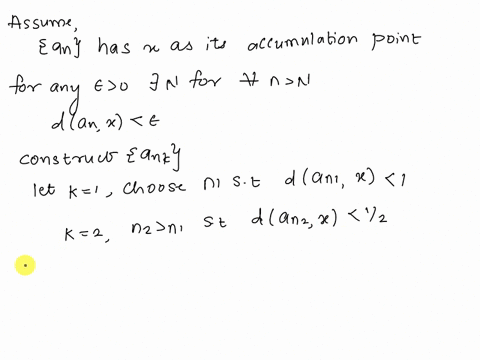 Assume,
{an} has x as its accumulation point
for any ε>0 ∃N for ∀ n>N
d(an, x) < ε
construct {ank}
let k=1, choose n1 s.t d(an1, x) < 1
k=2, n2>n1 st d(an2, x) < 1/2